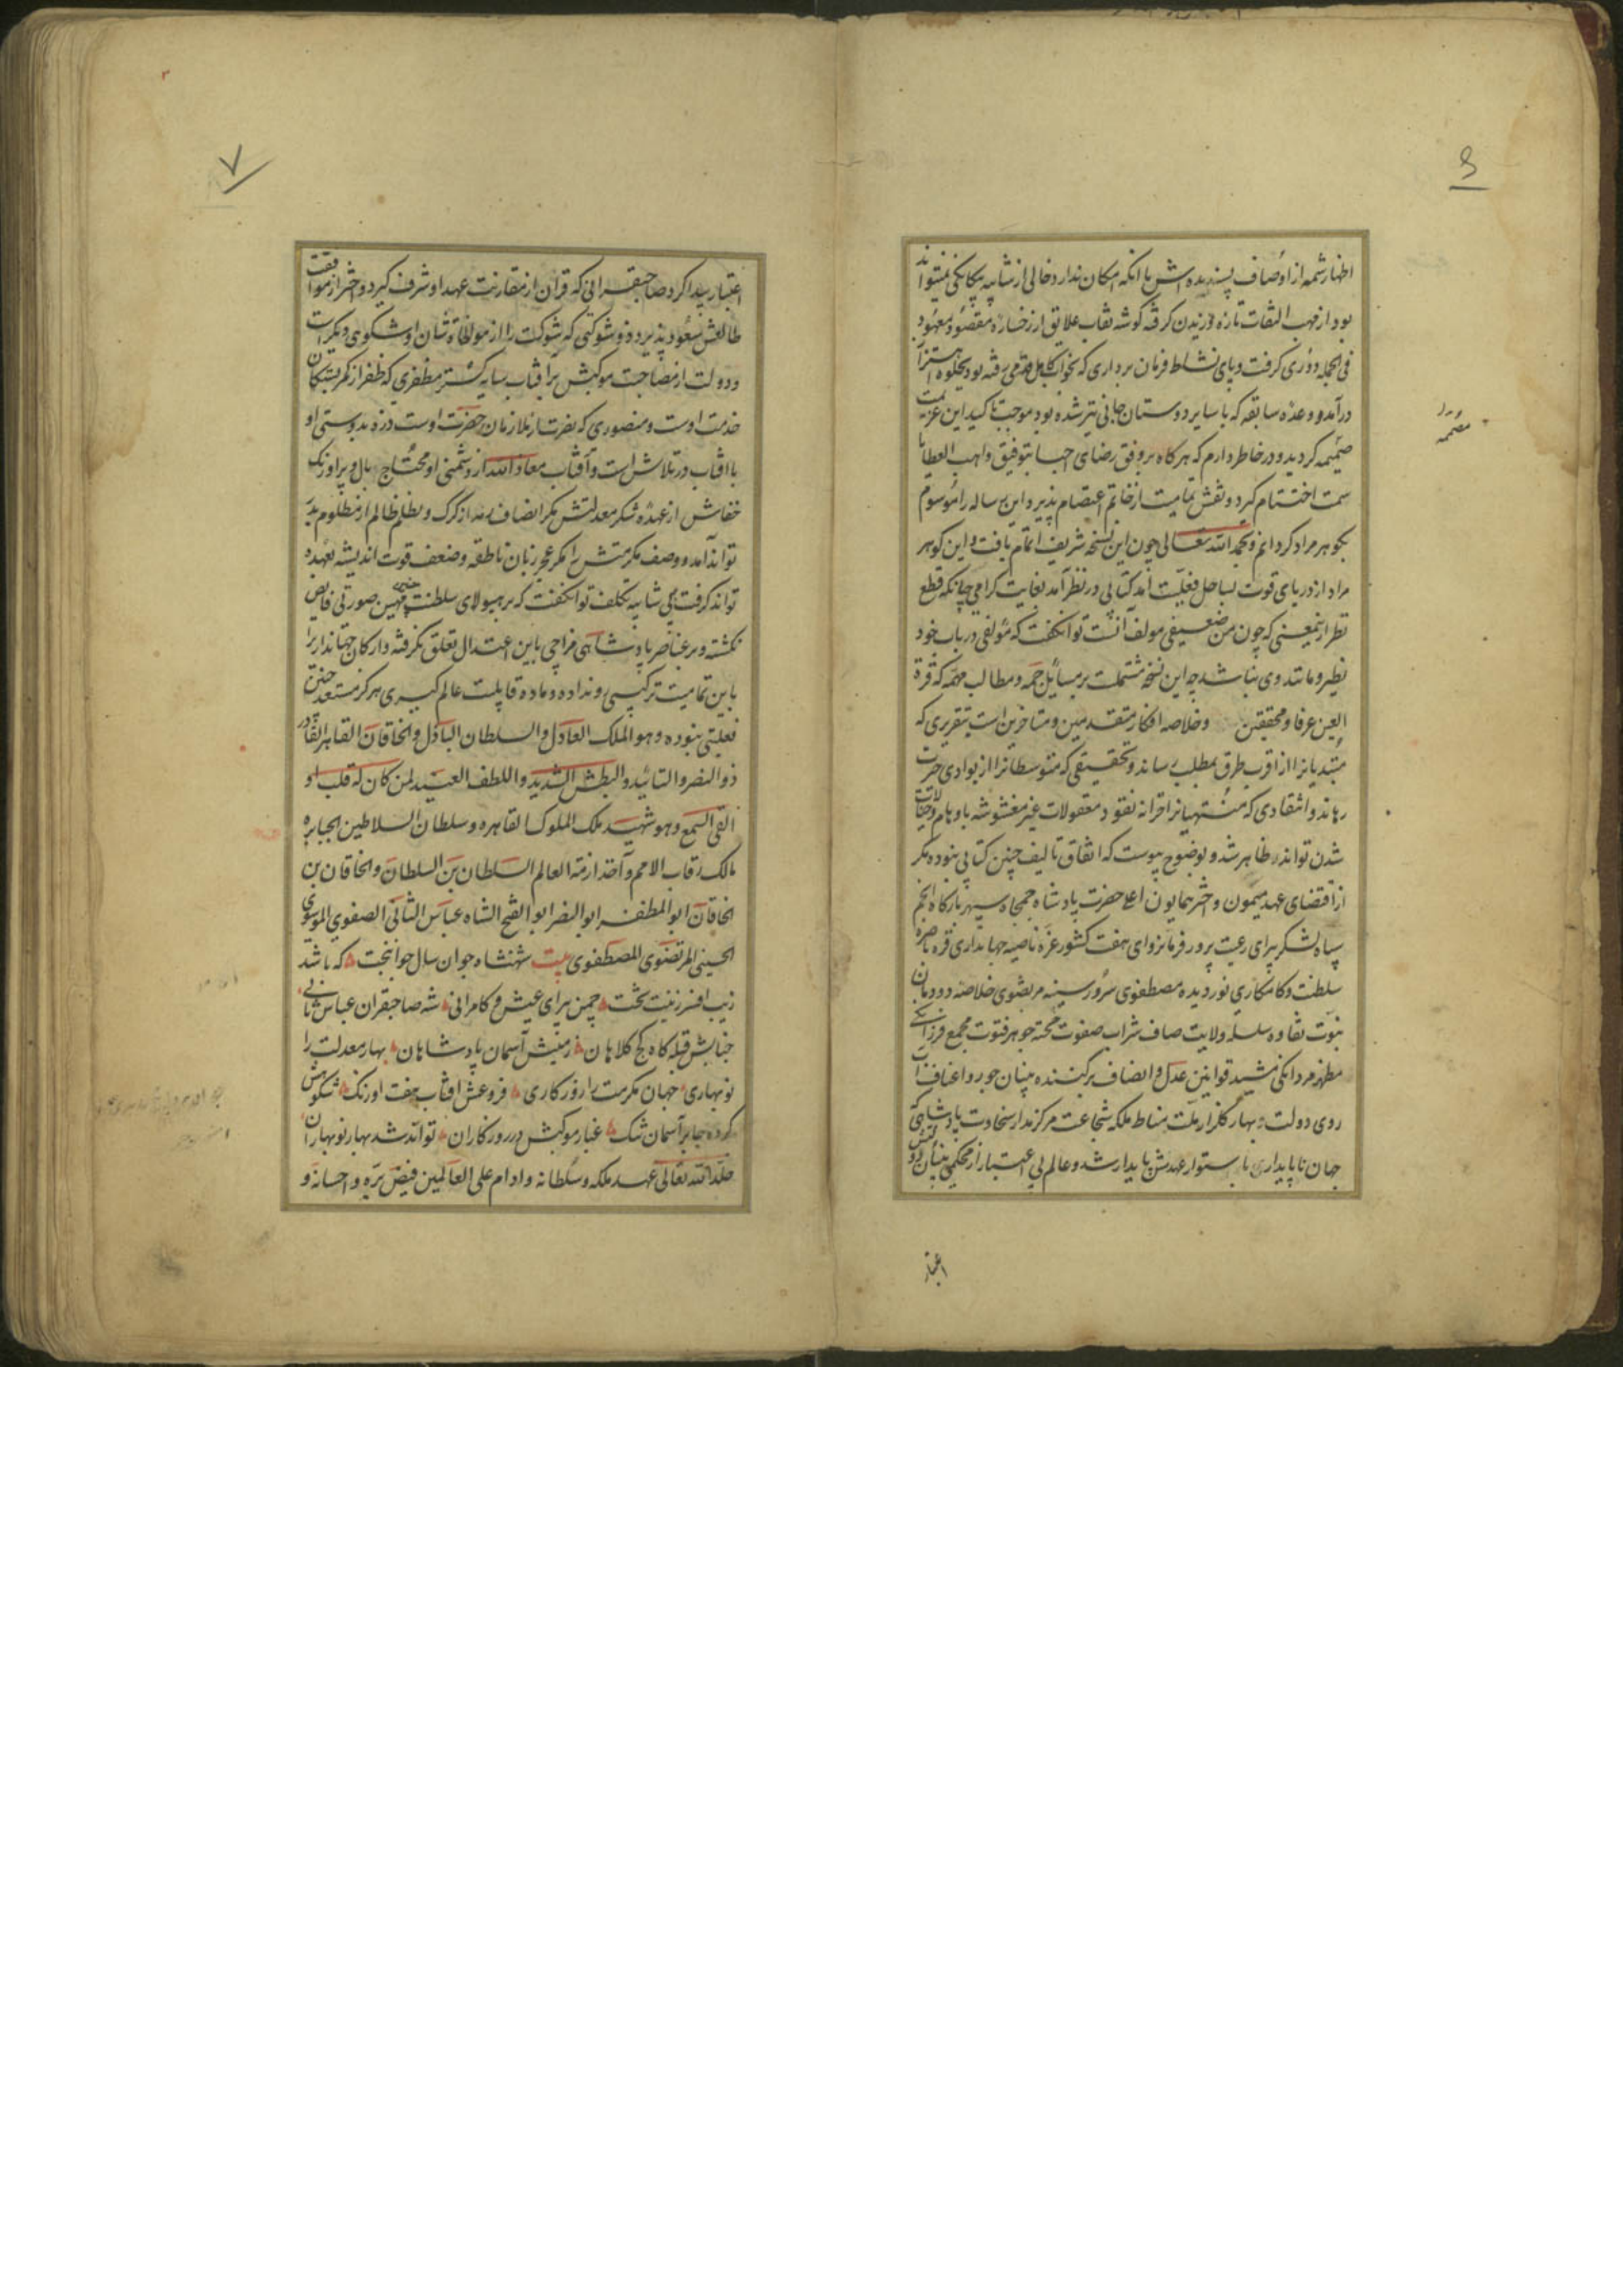 ۶
اظهار شمه از اوصاف پسندیده اش با انکه امکان ندارد خالی از شایبه بیکانکی نمیتواند
بود از مهب التفات تازه وزیدن کرفته کوشه نقاب علایق از رخساره مقصود و معهود
فی الجمله دوری کرفت و پای نشاط فرمان برداری که بخواب کاهل قدمی رفته بود بجلوه اهتزاز
درآمد و وعده سابقه که با سایر دوستان جانی نیز شده بود موجب تاکید این عزیمت
صمیمه کردید و در خاطر دارم که هرکاه بر وفق رضای احبا بتوفیق واهب العطایا
سمت اختتام کیرد و نقش تمامیت از خاتم اعتصام پذیرد این رساله را موسوم
بکوهر مراد کردانم و بحمد الله تعالی چون این نسخه شریف اتمام یافت و این کوهر
مراد از دریای قوت بساحل فعلیت آمد کتابی در نظر آمد بغایت کرامی چنانکه قطع
نظر از ینمعنی که چون من ضعیفی مولف آنست توانکفت که مؤلفی در باب خود
نظیر و مانند وی نباشد چه این نسخه مشتملست بر مسایل جمه و مطالب مهمه که قرة
العین عرفا و محققین و خلاصه افکار متقدمین و متاخرین است بتقریری که
مبتدیانرا از اقرب طرق بمطلب رساند و تحقیقی که متوسطانرا از بوادی حیرت
رهاند و انتقادی که منتهیانرا خزانه نقود معقولات غیر مغشوشه باوهام و خیالات
شدن تواند ظاهر شد و بوضوح پیوست که اتفاق تالیف چنین کتابی نبوده مکر
از اقتضای عهد میمون و اختر همایون اعلیحضرت پادشاه جمجاه سپهر بارکاه انجم
سپاه لشکر آرای رعیت پرور فرمانروای هفت کشور غره ناصیه جهانداری قره باصره
سلطنت و کامکاری نور دیده مصطفوی سرور سینه مرتضوی خلاصه دودمان
نبوت نقاوه سلسله ولایت صاف شراب صفوت جوهر فتوت مجمع فرزانکی
مظهر مردانکی مشید قوانین عدل و انصاف برکننده بنیان جور و اعتساف آب
روی دولت بهار کلزار ملت مناط ملکه شجاعت مرکز مدار سخاوت پادشاهی که
جهان ناپایدار با ستوار عهدش پایدار شد و عالم بی اعتبار از محکمی بنیان دولتش
اعتبار
مصممه
۷
اعتبار پیدا کرد صاحبقرانی که قران از مقارنت عهد او شرف کیرد و اختر از موافقت
طالعش سعود پذیرد ذو شوکتی که شوکت را از موالات شان او شکوهی دیکرست
و دولت از مصاحبت موکبش بر آفتاب سایه کستر مظفری که ظفر از کمربستکان
خدمت اوست و منصوری که نصرت از ملازمان حضرت اوست ذره بدوستی او
با افتاب در تلاش است و آفتاب معاذ الله از دشمنی او محتاج بال و پر اورنک
خفاش از عهده شکر معدلتش مکر انصاف رمه از کرک و تظلم ظالم از مظلوم بدر
تواند آمد و وصف مکرمتش را مکر عجز زبان ناطقه و ضعف قوت اندیشه بعهده
تواند کرفت بی شایبه تکلف توانکفت که بر هیولای سلطنت بهین صورتی فایض
نکشته و بر عناصر پادشاهی مزاجی باین اعتدال تعلق نکرفته و ارکان جهانداریرا
باین تمامیت ترکیبی رو نداده و ماده قابلیت عالم کبری هرکز مستعد چنین
فعلیتی نبوده و هو الملک العادل و السلطان الباذل و الخاقان القاهر القادر
ذو النصر و التایید و البطش الشدید و اللطف العتید لمن کان له قلب او
القی السمع و هو شهید ملک الملوک القاهره و سلطان السلاطین الجبابره
مالک رقاب الامم و آخذ ازمة العالم السلطان بن السلطان و الخاقان بن
الخاقان ابو المظفر ابو النصر ابو الفتح الشاه عباس الثانی الصفوی الموسوی
الحسینی المرتضوی المصطفوی بیت شهنشاه جوان سال جوانبخت که باشد
زیب افسر زینت تخت چمن پیرای عیش و کامرانی شه صاحبقران عباس ثانی
جنابش قبله کاه کج کلاهان زمینش آسمان پادشاهان بهار معدلت را
نوبهاری جهان مکرمت را روزکاری فروغش افتاب هفت اورنک شکوهش
کرده جا بر آسمان تنک غبار موکبش در روزکاران تواند شد بهار نوبهاران
خلد الله تعالی عهد ملکه و سلطانه و ادام علی العالمین فیض بره و احسانه و